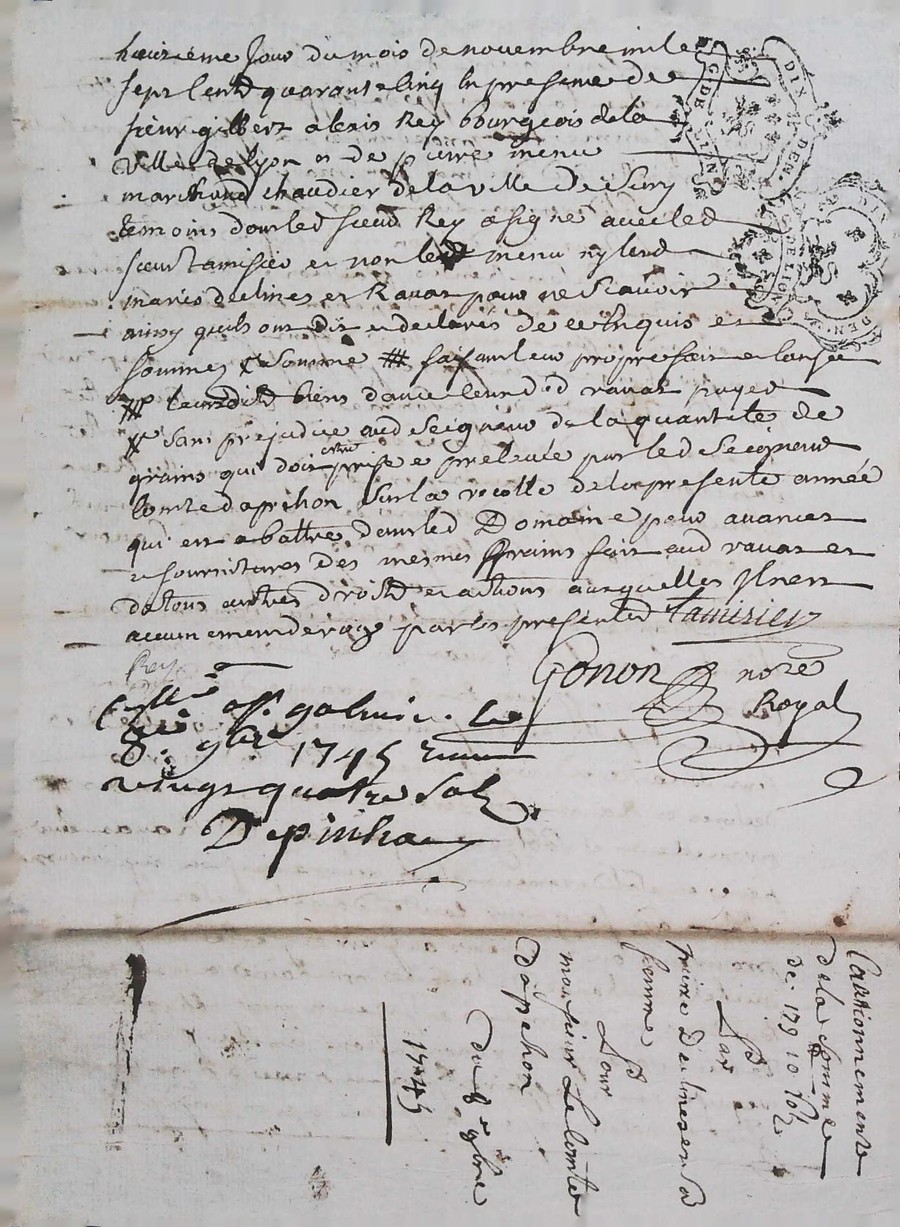 jour du mois de novembre mile
sept cent quarante cinq en presence de
sieur gilbert alexis Rey bourgeois de la
ville de lyon et de pierre menu
marchand chaudier de la ville de Sury
temoins dont led sieur Rey a signé avec led
sieur tamisier et non led menu ny led
mariés delines et Ravat pour ne scavoir
ainsy quils ont dit et declarés de ce enquis et
sommés
biens dance ravat
sans prejudice aud Seigneur de la quantité de
grains qui doit estre prise e prelevée par led Seigneur
Comte dapchon sur la recolte de la presente année
qui est a battre dans led Domaine pour avances
et fournitures des mesmes grains fait aud ravat et
de tous autres droits et actions auxquelles il nest
aucunement derogé par les presentes tamisier
Rey
Gonon no.re
Royal
Collé a s.t galmier le
8.e 9bre 1745 Recu
vingt quatre Sols
Depinhac
Cautionnement
de la somme
de 179 10 sols
Par
pierre Delines et sa
femme
Pour
monsieur Le Comte
dapchon
du 8e 9bre
1745
DIX DEN.
G. DE LION